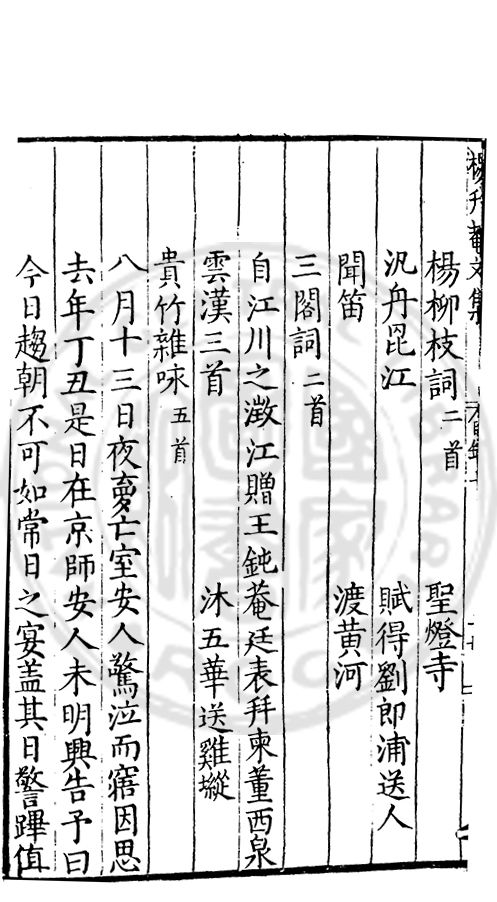 楊升菴文集
目録
楊柳枝詞二首　聖燈寺
汎舟昆江　賦得劉郎浦送人
聞笛　渡黄河
三閣詞二首
自江川之澂江贈王鈍菴廷表幷柬董西泉
雲漢三首　沐五華送雞㙡
貴竹雜咏五首
八月十三日夜夢亡室安人驚泣而寤因思
去年丁丑是日在京師安人未明興告予曰
今日趨朝不可如常日之宴盖其日警蹕值